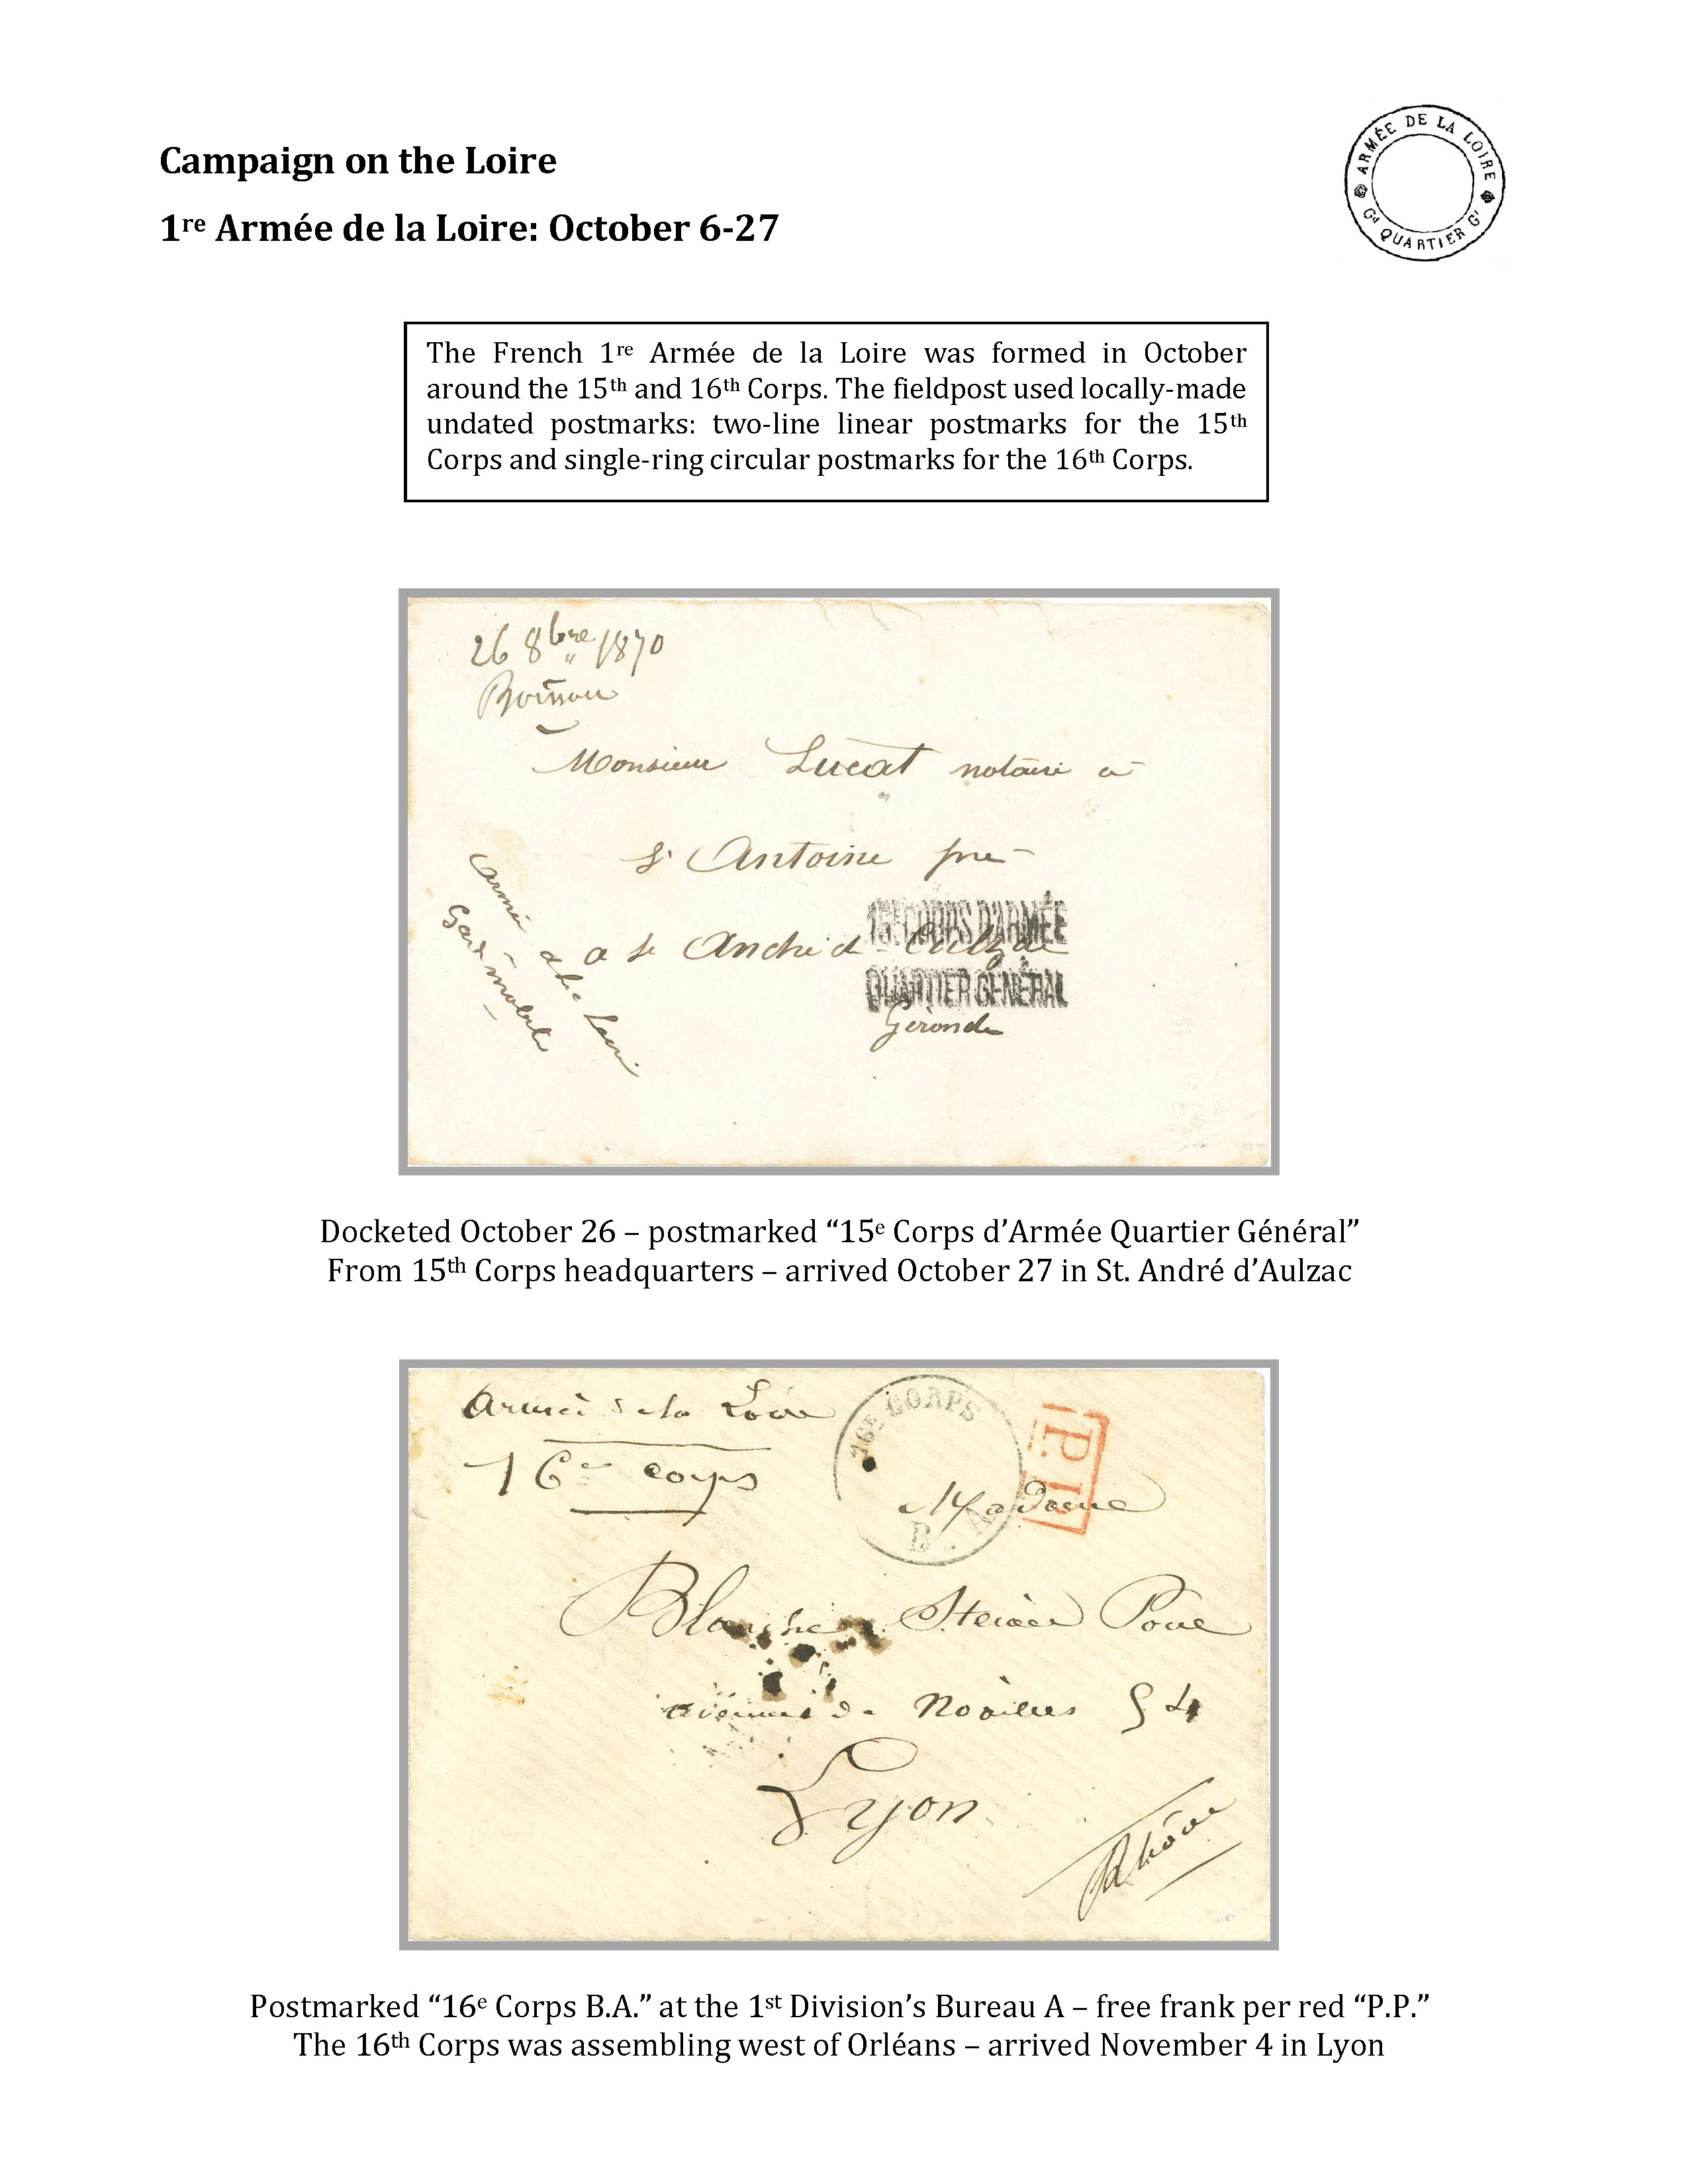 Campaign on the Loire
1re Armée de la Loire: October 6-27
ARMÉE DE LA LOIRE
Gd QUARTIER Gl
The French 1re Armée de la Loire was formed in October
around the 15th and 16th Corps. The fieldpost used locally-made
undated postmarks: two-line linear postmarks for the 15th
Corps and single-ring circular postmarks for the 16th Corps.
26 8bre 1870
Monsieur Lucat notaire a
St Antoine pre
15E CORPS D'ARMÉE
a St André d
QUARTIER GÉNÉRAL
Gironde
armée de la Loire
Garde mobile
Docketed October 26 – postmarked “15e Corps d’Armée Quartier Général”
From 15th Corps headquarters – arrived October 27 in St. André d’Aulzac
Armée de la Loire
16e corps
16E CORPS
B. A
P.P.
Madame
Blanche
avenue de Noailles 54
Lyon
Rhône
Postmarked “16e Corps B.A.” at the 1st Division’s Bureau A – free frank per red “P.P.”
The 16th Corps was assembling west of Orléans – arrived November 4 in Lyon